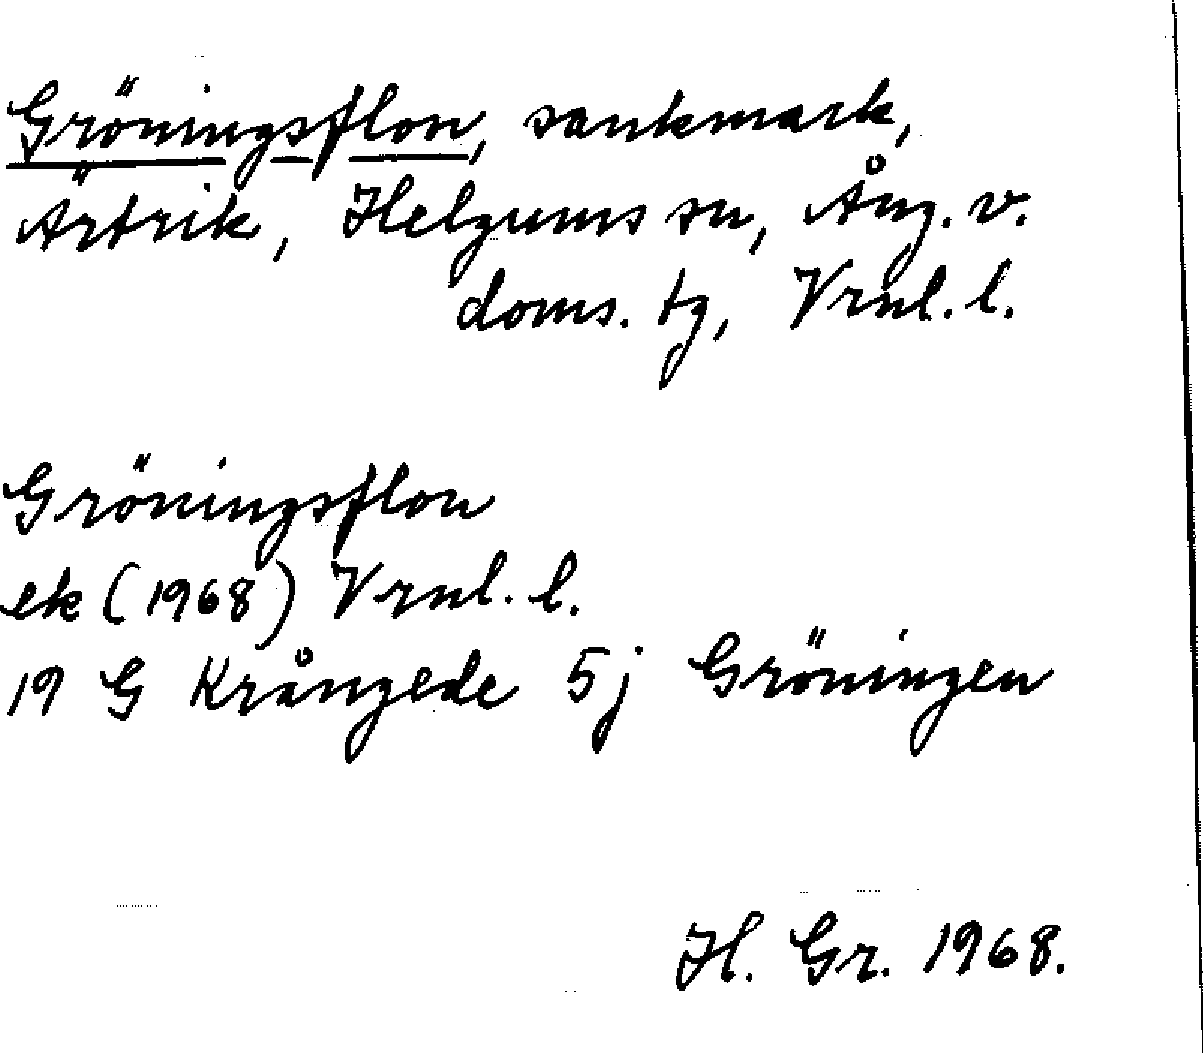 Gröningsflon, sankmark,
Ärtrik, Helgums sn, Ång. v.
doms. tg, Vrnl. l.
Gröningsflon
ek (1968) Vrnl. l.
19 G Krångede 5j Gröningen
H. Gr. 1968.